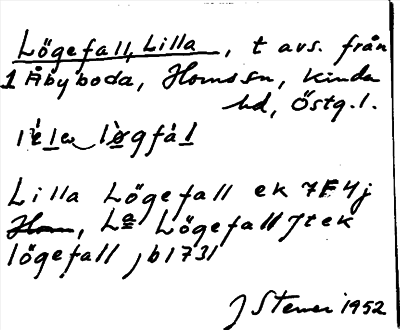 Lögefall, Lilla, t avs. från
1 Åbyboda, Horns sn, Kinda
hd, Östg. l.
lịla løgfál
Lilla Lögefall ek 7F4j
Horn, La Lögefall Jt ek
lögefall jb 1731
J Stemer 1952